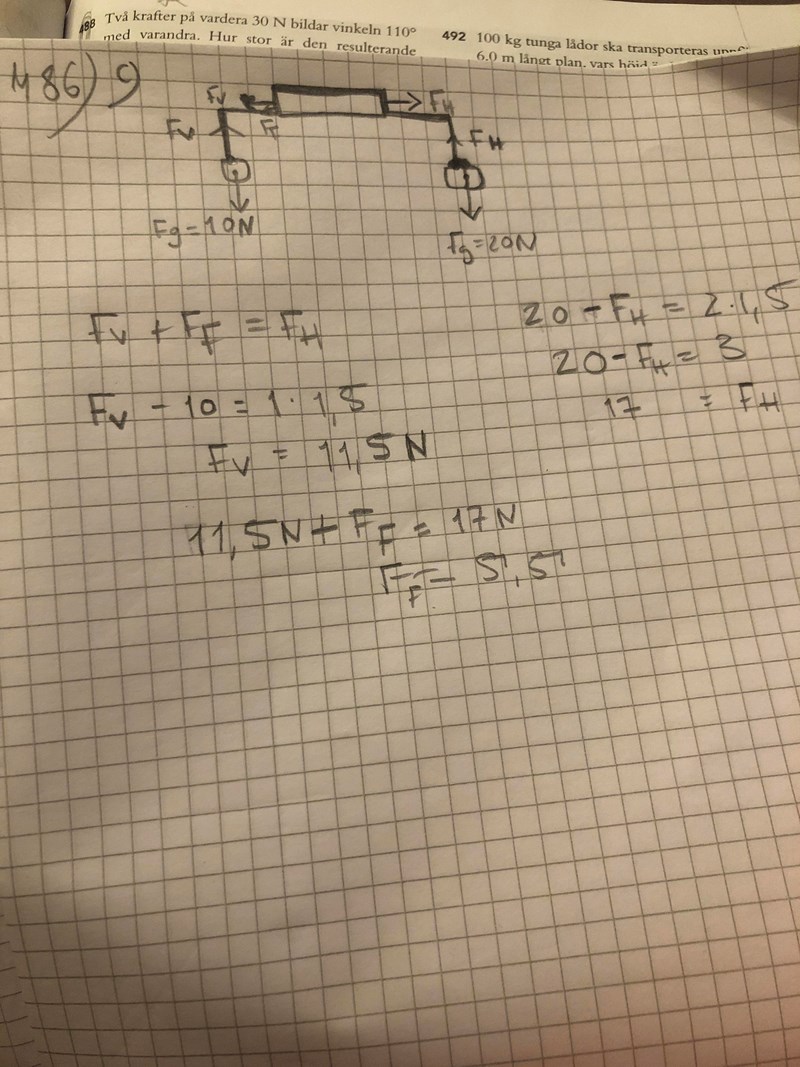 488 Två krafter på vardera 30 N bildar vinkeln 110°
med varandra. Hur stor är den resulterande
492 100 kg tunga lådor ska transporteras
6,0 m långt plan, vars höjd
486) g
Fv
FH
Fv
FF
FH
Fg=10N
Fg=20N
Fv + FF = FH
Fv - 10 = 1 · 1,5
Fv = 11,5 N
11,5N + FF = 17N
FF = 5,5
20 - FH = 2·1,5
20 - FH = 3
17 = FH